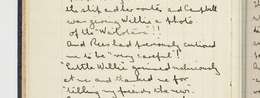 the ship and her routes and Campbell
was giving Willie a photo
of the "Waitotara"!!
And Rees had previously cautioned
me to be "very careful"!
Little Willie grinned maliciously
at me and thanked me for
"telling my friends the news.